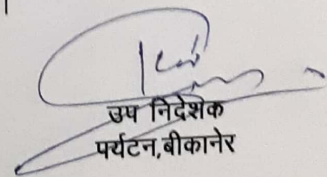 उप निदेशक
पर्यटन,बीकानेर